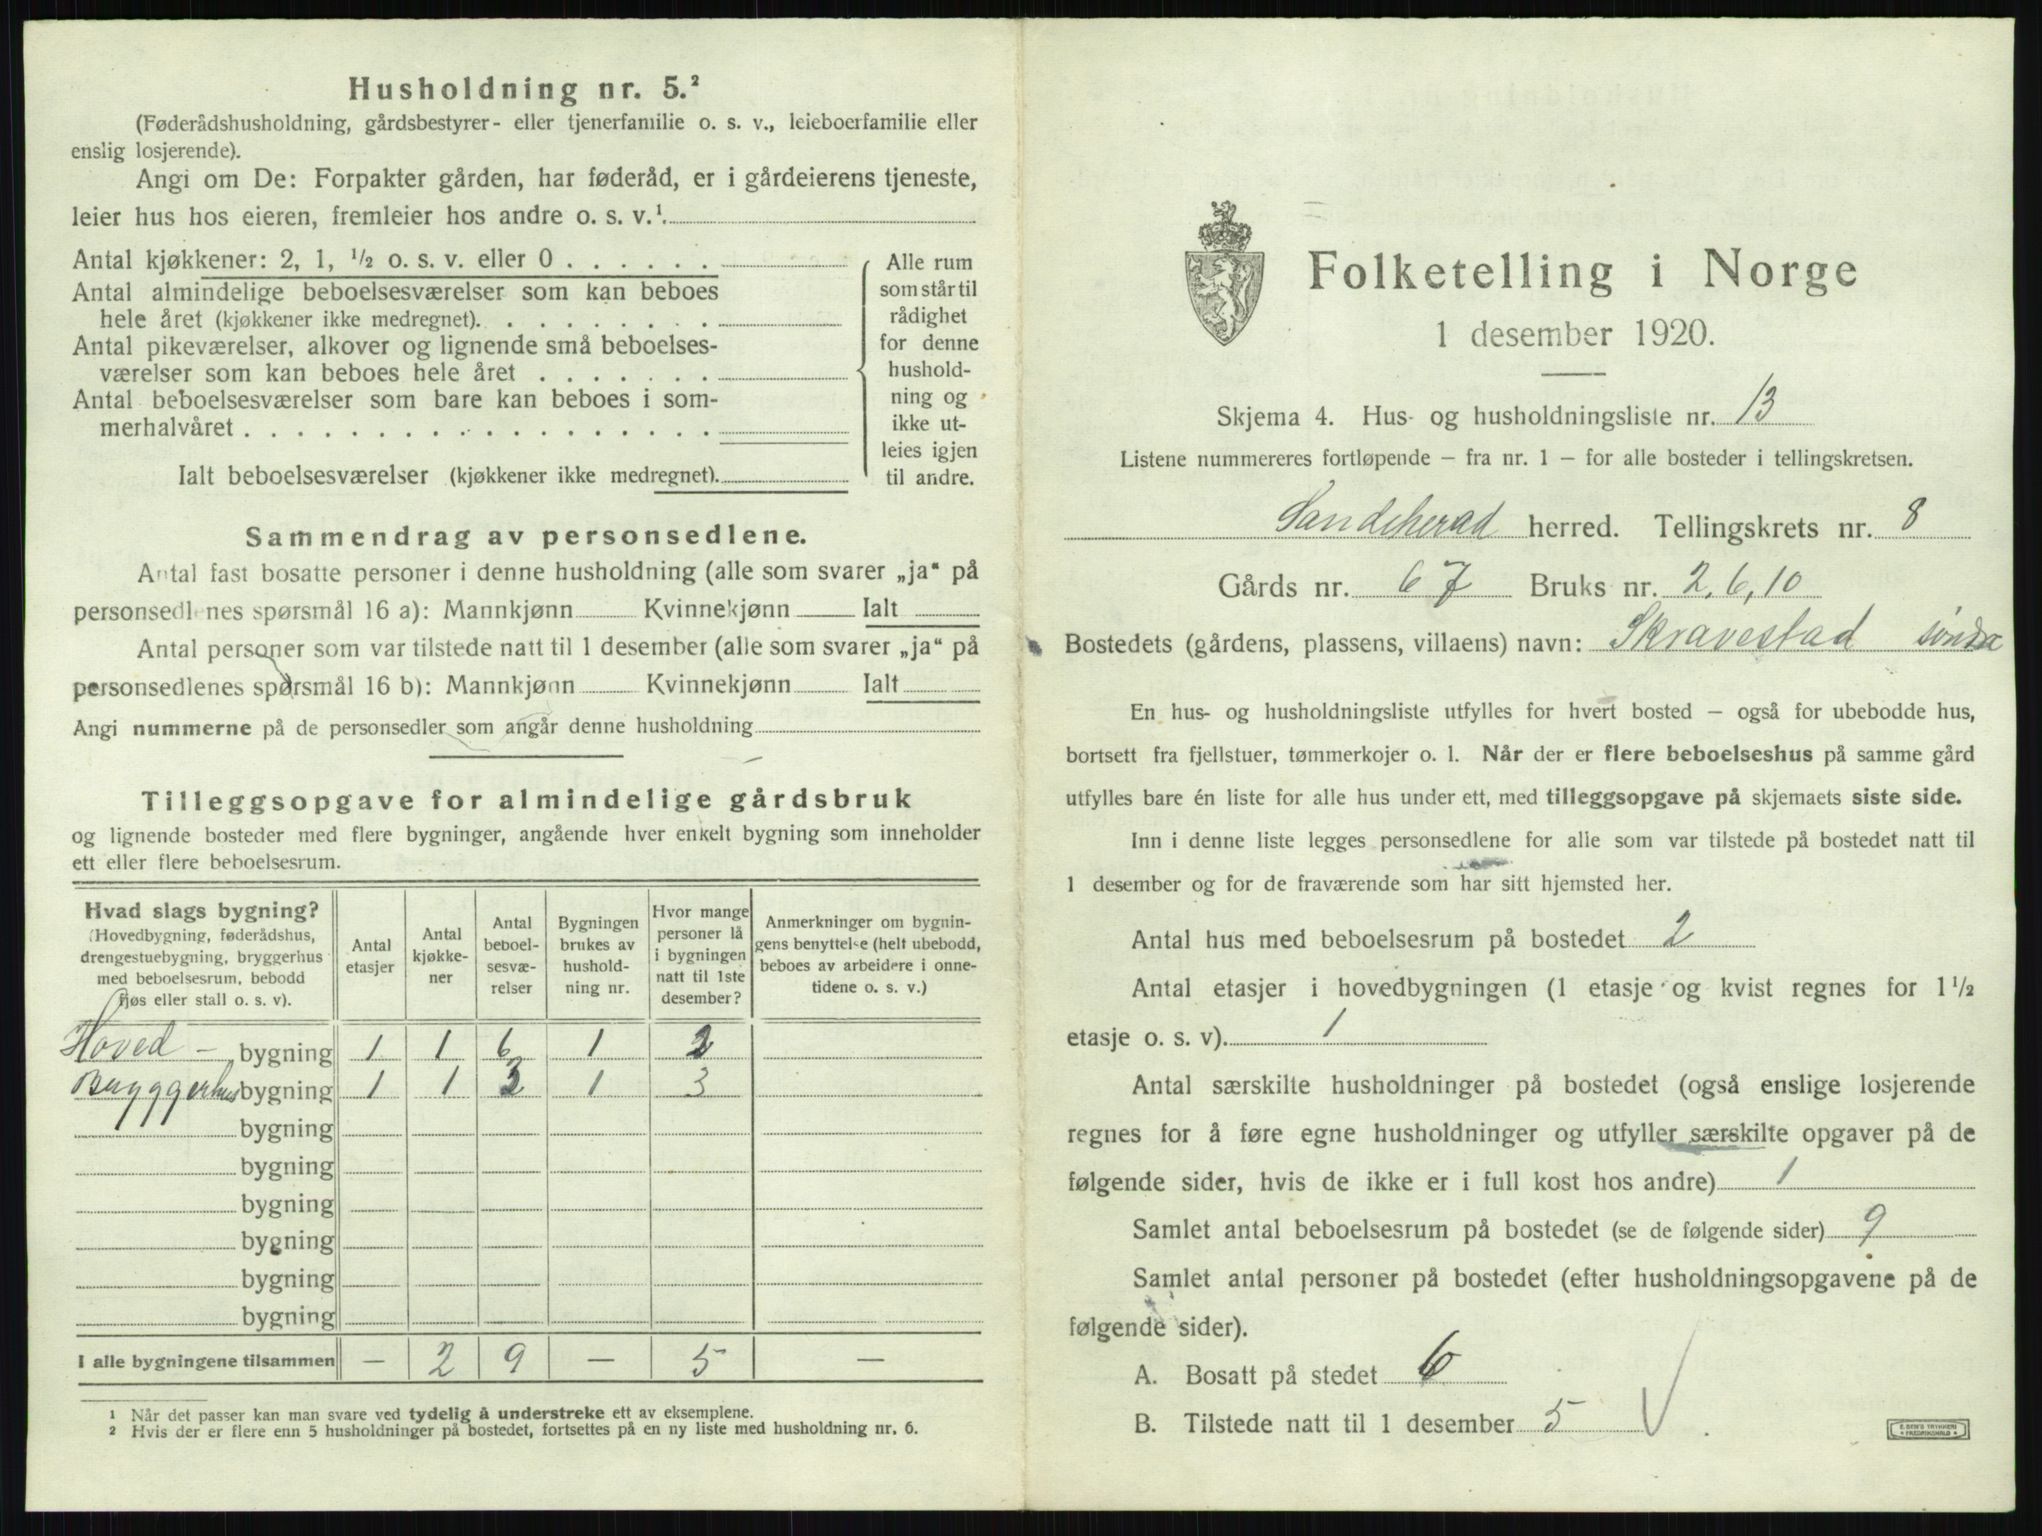 Husholdning nr. 5.²
(Føderådshusholdning, gårdsbestyrer- eller tjenerfamilie o. s. v., leieboerfamilie eller
enslig losjerende).
Angi om De: Forpakter gården, har føderåd, er i gårdeierens tjeneste,
leier hus hos eieren, fremleier hos andre o. s. v.¹.
Antal kjøkkener: 2, 1, ½ o. s. v. eller 0 . . . . . .
Antal almindelige beboelsesværelser som kan beboes
hele året (kjøkkener ikke medregnet). . . . . . . . .
Antal pikeværelser, alkover og lignende små beboelses-
værelser som kan beboes hele året . . . . . . .
Antal beboelsesværelser som bare kan beboes i som-
merhalvåret . . . . . . . . . . . . . . . . . .
Ialt beboelsesværelser (kjøkkener ikke medregnet).
Alle rum
som står til
rådighet
for denne
hushold-
ning og
ikke ut-
leies igjen
til andre.
Sammendrag av personsedlene.
Antal fast bosatte personer i denne husholdning (alle som svarer „ja“ på
personsedlenes spørsmål 16 a): Mannkjønn Kvinnekjønn Ialt
Antal personer som var tilstede natt til 1 desember (alle som svarer „ja“ på
personsedlenes spørsmål 16 b): Mannkjønn Kvinnekjønn Ialt
Angi nummerne på de personsedler som angår denne husholdning
Tilleggsopgave for almindelige gårdsbruk
og lignende bosteder med flere bygninger, angående hver enkelt bygning som inneholder
ett eller flere beboelsesrum.
Hvad slags bygning?
(Hovedbygning, føderådshus,
drengestuebygning, bryggerhus
med beboelsesrum, bebodd
fjøs eller stall o. s. v).
Antal
etasjer
Antal
kjøkke-
ner
Antal
beboel-
sesvæ-
relser
Bygningen
brukes av
hushold-
ning nr.
Hvor mange
personer lå
i bygningen
natt til 1ste
desember?
Anmerkninger om bygnin-
gens benyttelse (helt ubebodd,
beboes av arbeidere i onne-
tidene o. s. v.)
Hoved - bygning 1 1 6 1 2
Bryggerhus bygning 1 1 3 1 3
bygning
bygning
bygning
bygning
bygning
bygning
I alle bygningene tilsammen — 2 9 — 5 —
¹ Når det passer kan man svare ved tydelig å understreke ett av eksemplene.
² Hvis der er flere enn 5 husholdninger på bostedet, fortsettes på en ny liste med husholdning nr. 6.
Folketelling i Norge
1 desember 1920.
Skjema 4. Hus- og husholdningsliste nr. 13
Listene nummereres fortløpende – fra nr. 1 – for alle bosteder i tellingskretsen.
Sandeherad herred. Tellingskrets nr. 8
Gårds nr. 67 Bruks nr. 2, 6, 10
Bostedets (gårdens, plassens, villaens) navn: Skravestad søndre
En hus- og husholdningsliste utfylles for hvert bosted – også for ubebodde hus,
bortsett fra fjellstuer, tømmerkojer o. l. Når der er flere beboelseshus på samme gård
utfylles bare én liste for alle hus under ett, med tilleggsopgave på skjemaets siste side.
Inn i denne liste legges personsedlene for alle som var tilstede på bostedet natt til
1 desember og for de fraværende som har sitt hjemsted her.
Antal hus med beboelsesrum på bostedet 2
Antal etasjer i hovedbygningen (1 etasje og kvist regnes for 1½
etasje o. s. v). 1
Antal særskilte husholdninger på bostedet (også enslige losjerende
regnes for å føre egne husholdninger og utfyller særskilte opgaver på de
følgende sider, hvis de ikke er i full kost hos andre) 1
Samlet antal beboelsesrum på bostedet (se de følgende sider) 9
Samlet antal personer på bostedet (efter husholdningsopgavene på de
følgende sider).
A. Bosatt på stedet 6
B. Tilstede natt til 1 desember 5